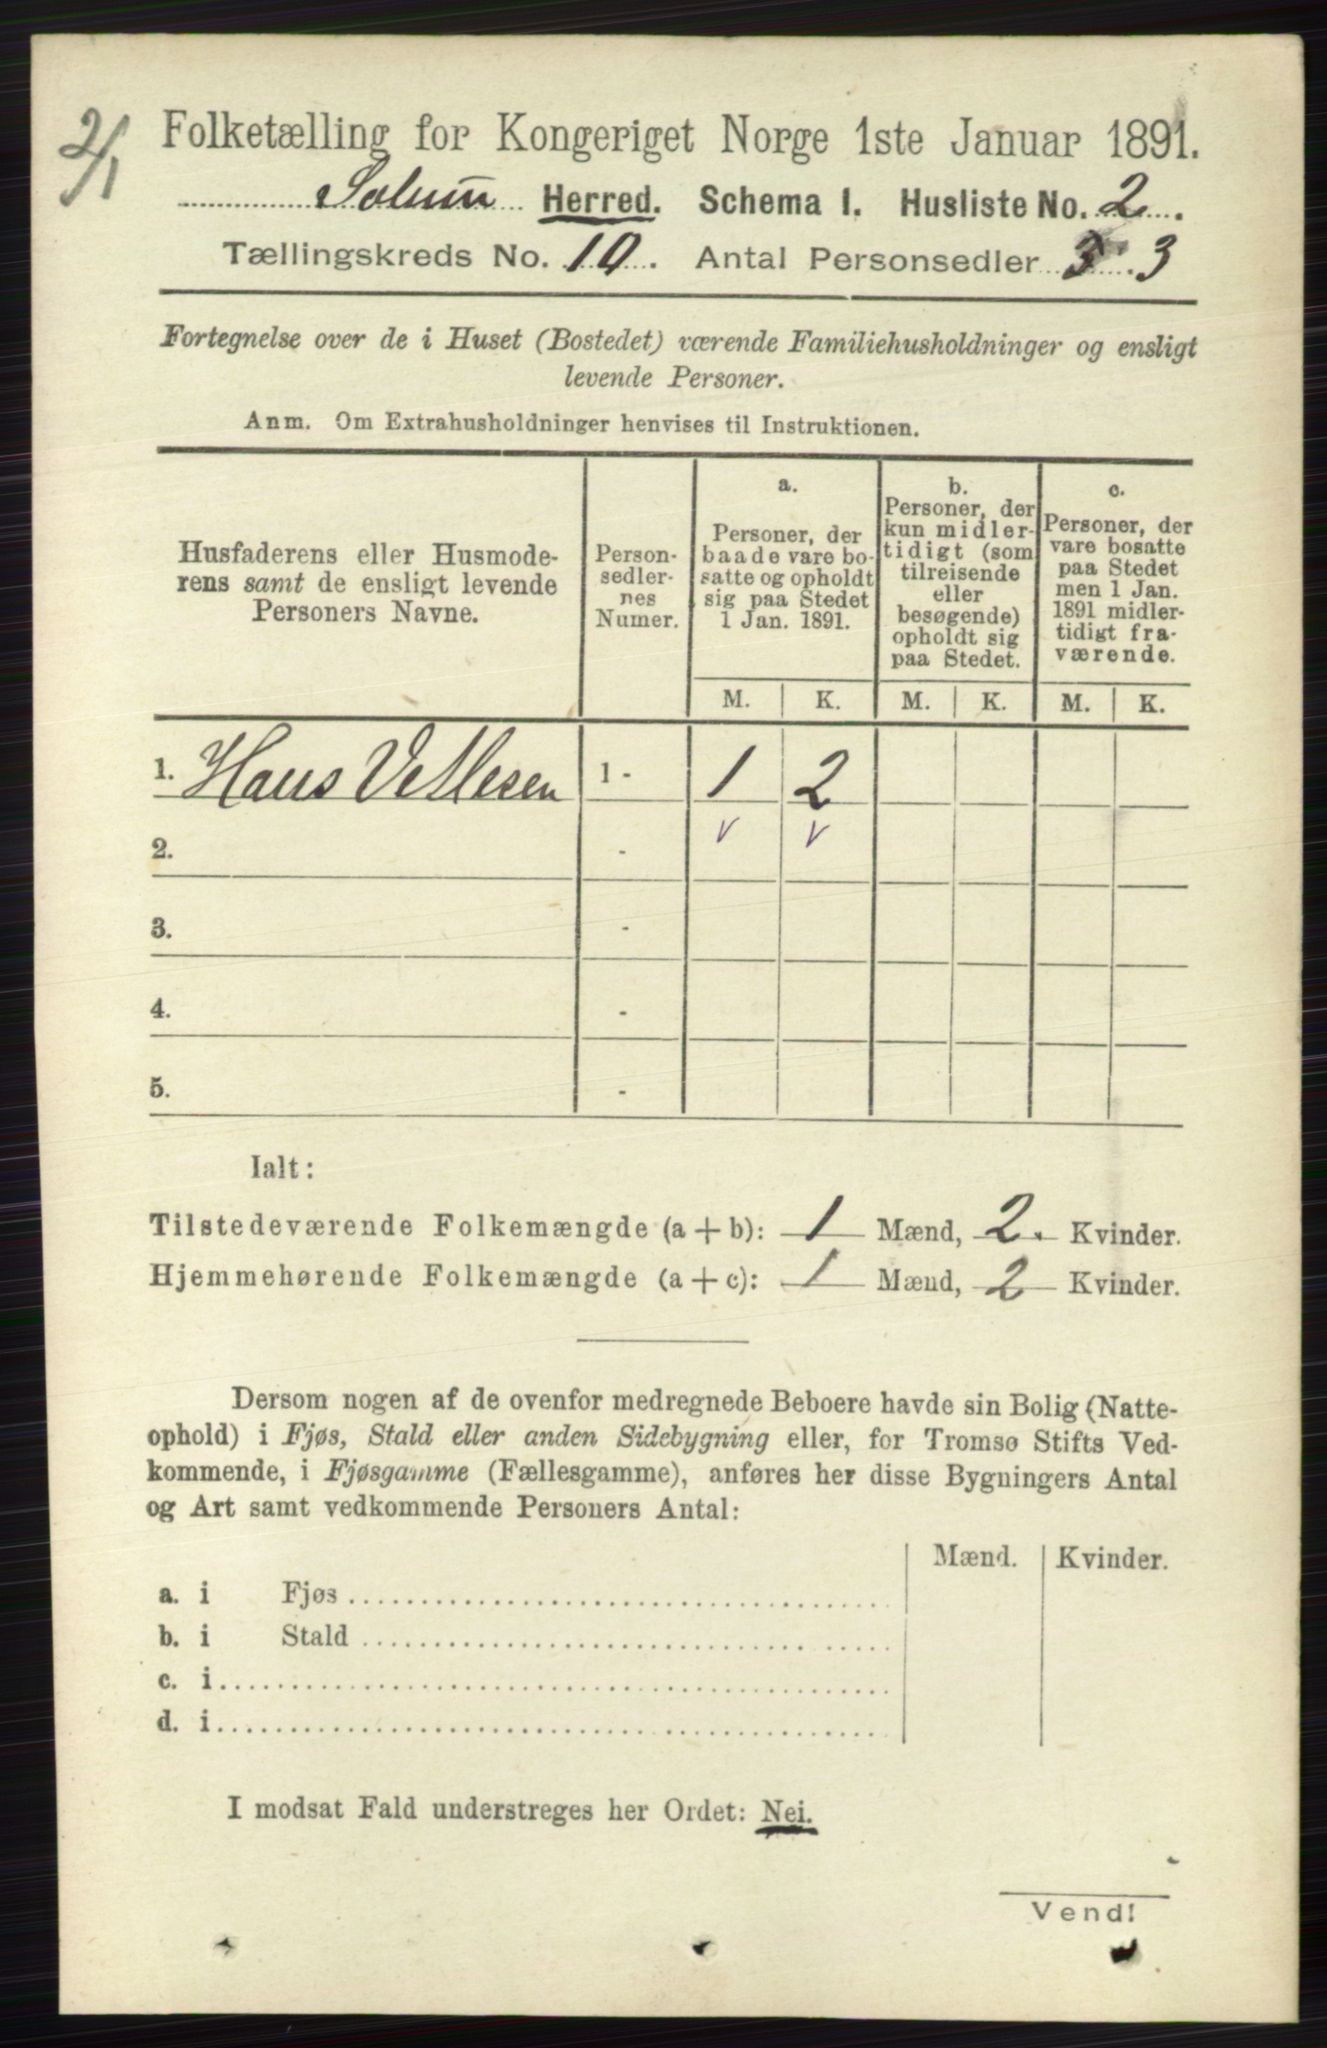 2/1
Folketælling for Kongeriget Norge 1ste Januar 1891.
Solum Herred. Schema I. Husliste No. 2.
Tællingskreds No. 10. Antal Personsedler 3 3
Fortegnelse over de i Huset (Bostedet) værende Familiehusholdninger og ensligt
levende Personer.
Anm. Om Extrahusholdninger henvises til Instruktionen.
Husfaderens eller Husmode-
rens samt de ensligt levende
Personers Navne.
Person-
sedler-
nes
Numer.
a.
Personer, der
baade vare bo-
satte og opholdt
sig paa Stedet
1 Jan. 1891.
b.
Personer, der
kun midler-
tidigt (som
tilreisende
eller
besøgende)
opholdt sig
paa Stedet.
c.
Personer, der
vare bosatte
paa Stedet
men 1 Jan.
1891 midler-
tidigt fra-
værende.
M. K. M. K. M. K.
1. Hans Vetlesen 1 - 1 2
2. - v v
3. -
4. -
5. -
Ialt:
Tilstedeværende Folkemængde (a + b): 1 Mænd, 2. Kvinder.
Hjemmehørende Folkemængde (a + c): 1 Mænd, 2 Kvinder.
Dersom nogen af de ovenfor medregnede Beboere havde sin Bolig (Natte-
ophold) i Fjøs, Stald eller anden Sidebygning eller, for Tromsø Stifts Ved-
kommende, i Fjøsgamme (Fællesgamme), anføres her disse Bygningers Antal
og Art samt vedkommende Personers Antal:
Mænd. Kvinder.
a. i Fjøs
b. i Stald
c. i
d. i
I modsat Fald understreges her Ordet: Nei.
Vend!